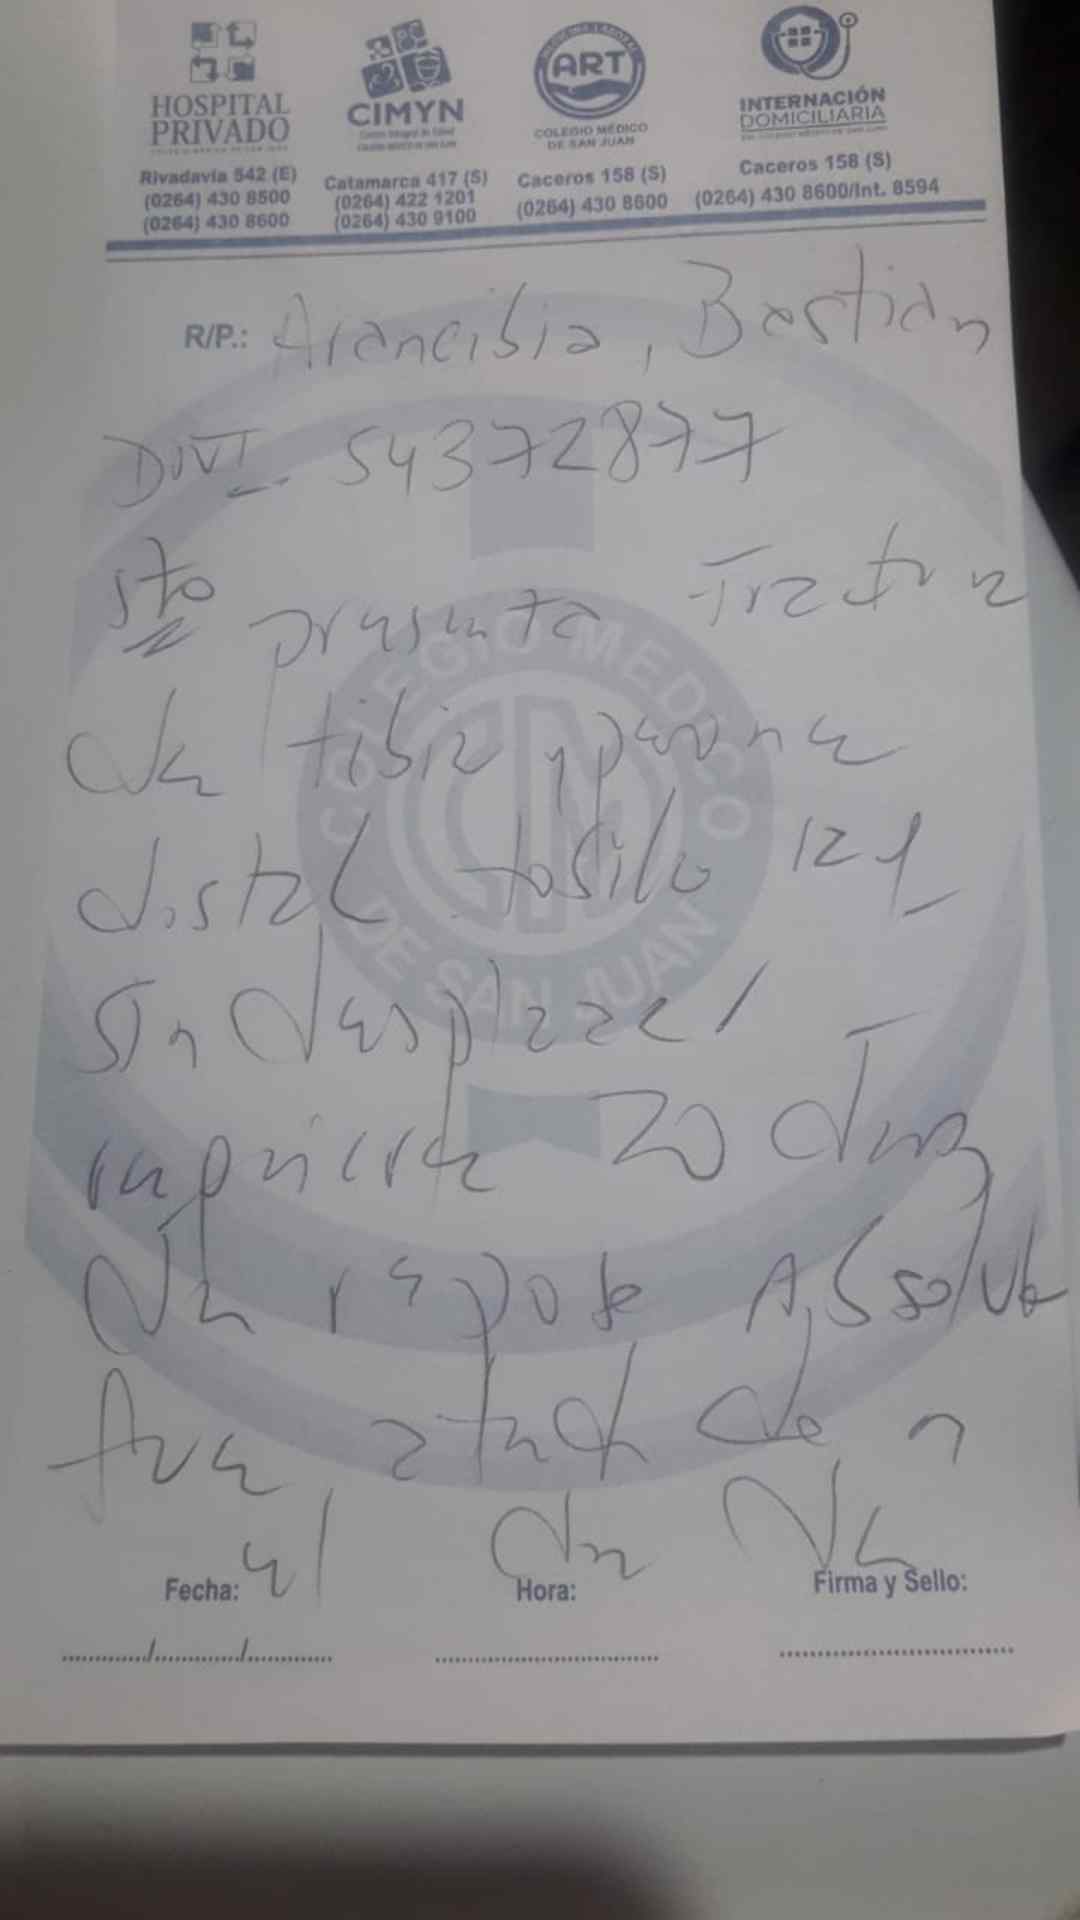 HOSPITAL PRIVADO
Rivadavia 542 (E)
(0264) 430 8500
(0264) 430 8600
CIMYN
Catamarca 417 (S)
(0264) 422 1201
(0264) 430 9100
ART
COLEGIO MÉDICO
DE SAN JUAN
Caceros 158 (S)
(0264) 430 8600
INTERNACIÓN
DOMICILIARIA
Caceros 158 (S)
(0264) 430 8600/Int. 8594
R/P.: Arancibia, Bastian
DNI 54372877
presenta Fractura
de tibia y perone
distal tobillo izq
sin desplazar
requiere 20 dias
de reposo Absoluto
Fue atend
el
Fecha:
Hora:
Firma y Sello:
COLEGIO MEDICO
DE SAN JUAN